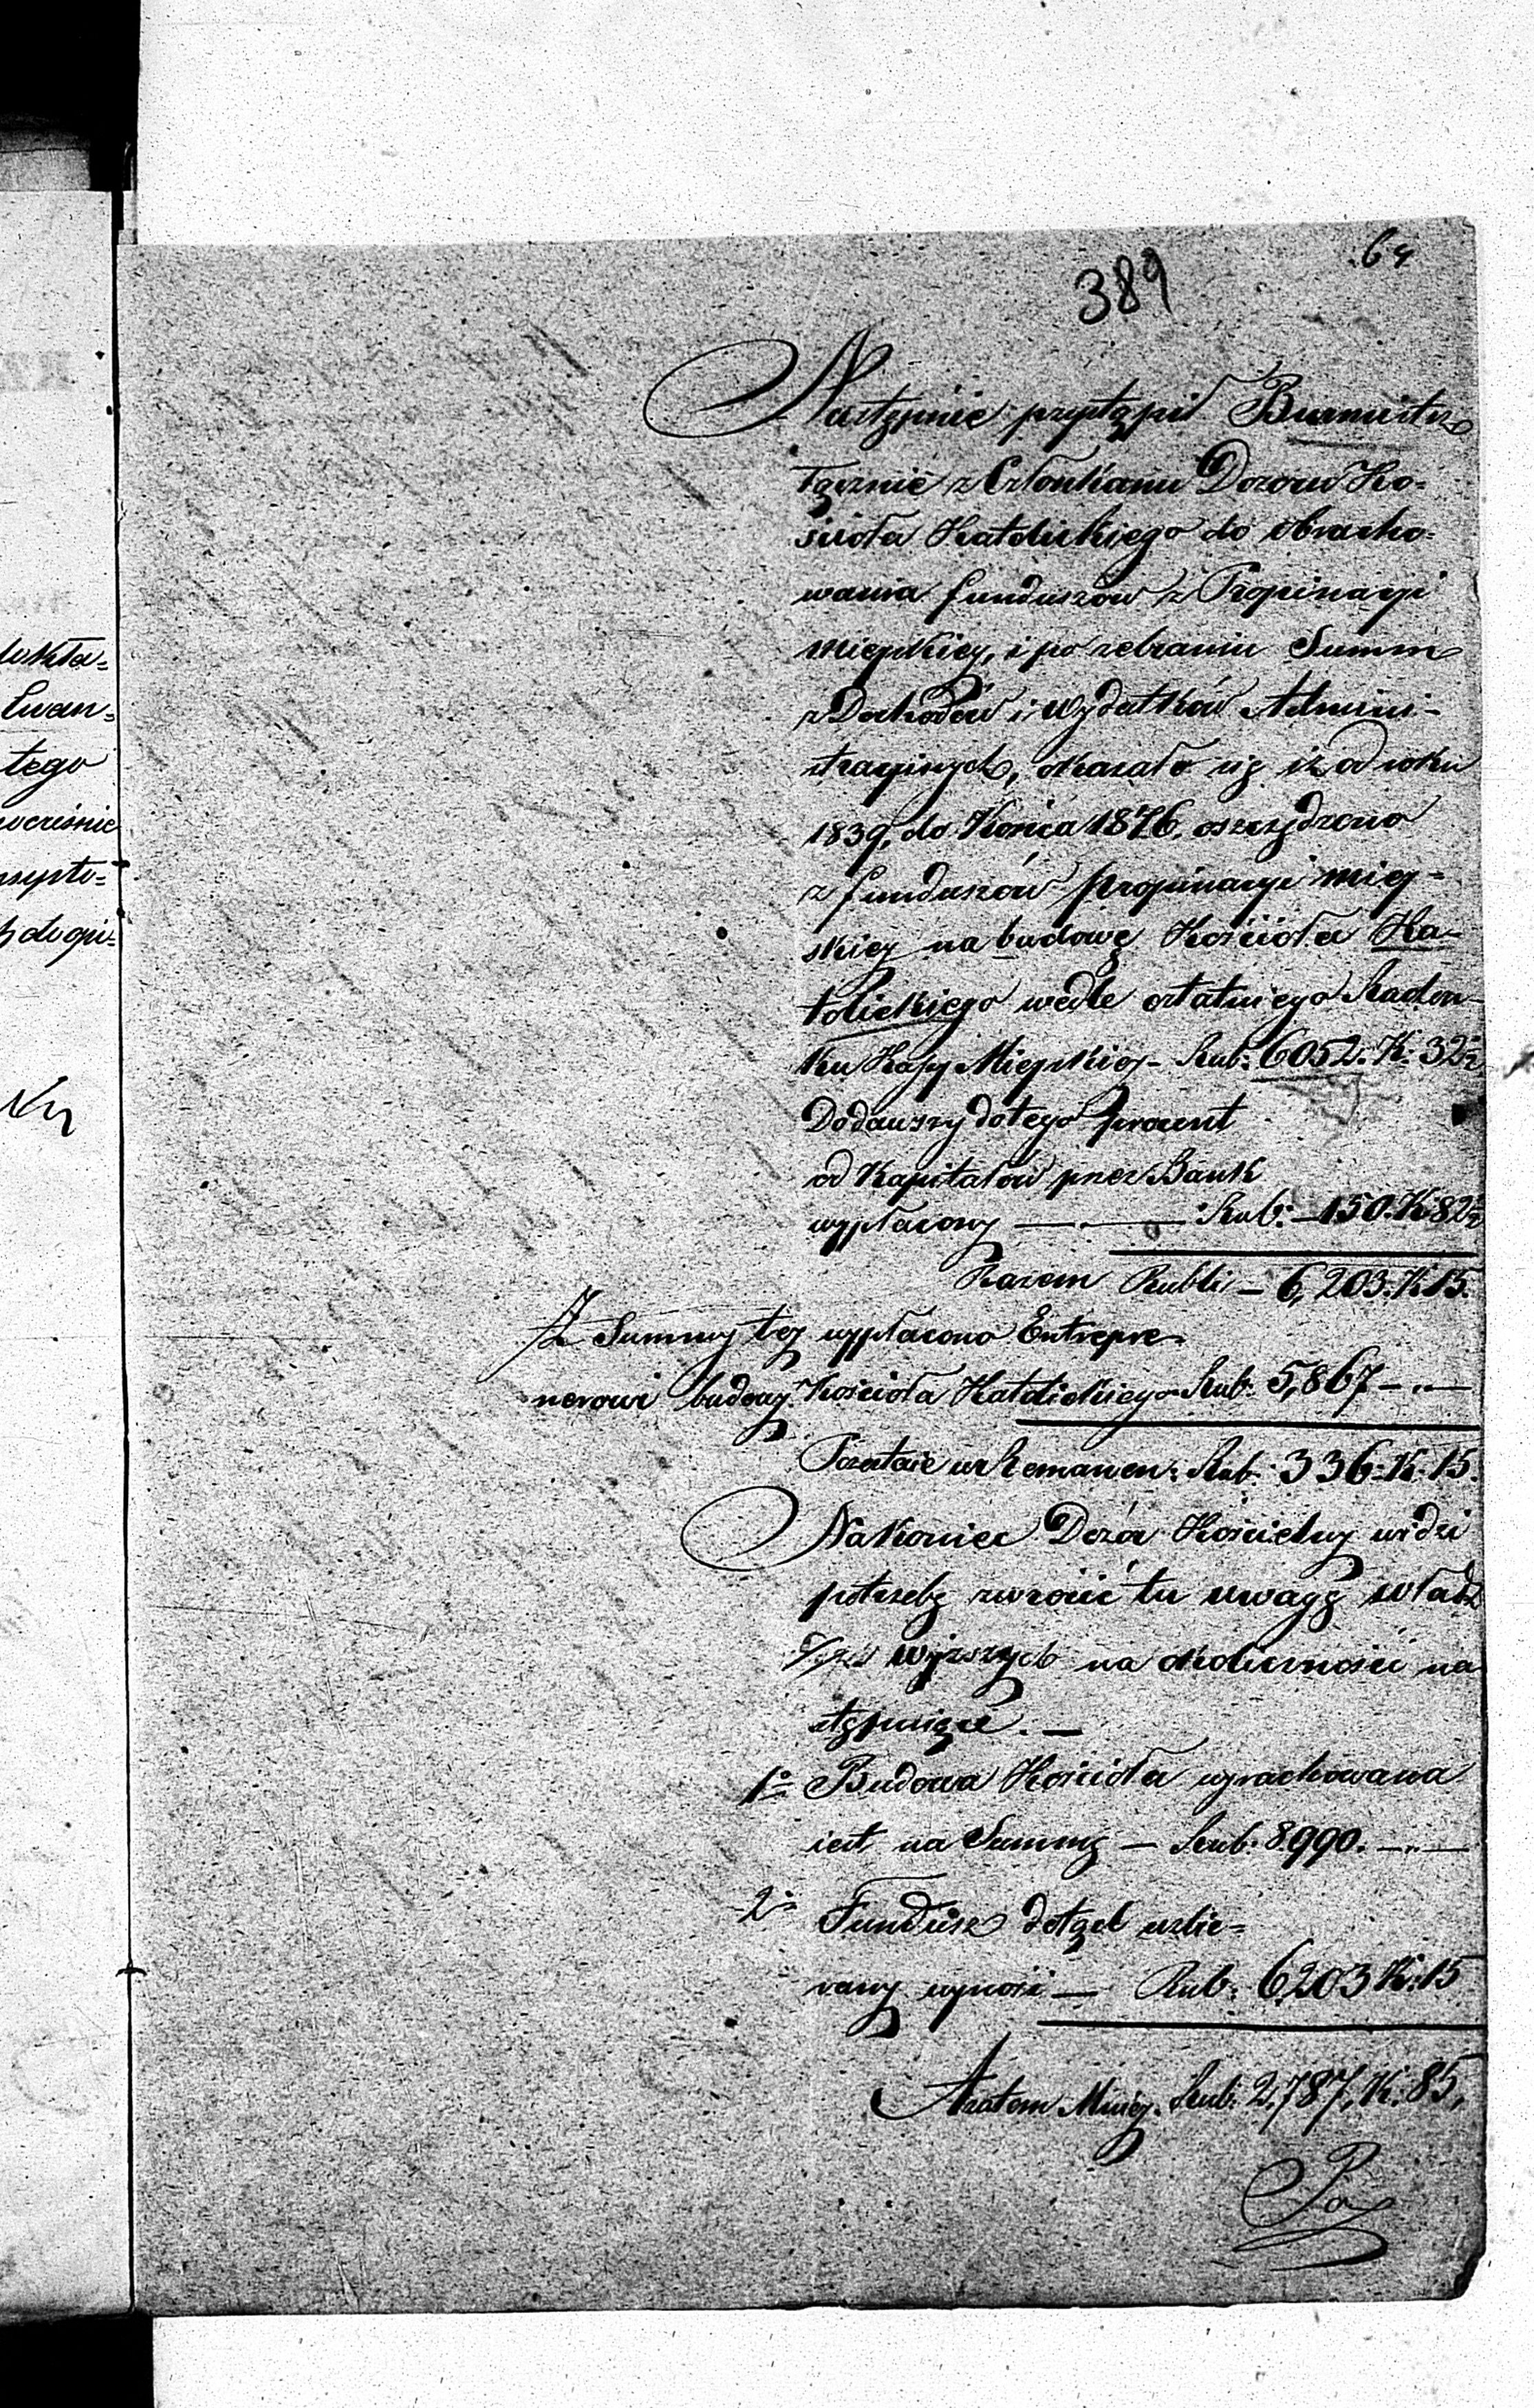 64
389
Następnie przystąpił Burmistrz
łącznie z Członkami Dozoru Ko=
ścioła Katolickiego do obracho=
wania funduszów z Propinacyi
mieyskiey, i po zebraniu Summ
z Dochodów i Wydatków Admini-
stracyinych, okazało się iż od roku
1839, do Końca 1846. oszczędzono
z funduszów propinacyi miey-
skiey na budowę Kościoła Ka-
tolickiego wedle ostatniego Rachun-
ku Kasy Mieyskiey - Rub: 6052. K: 32½
Dodawszy do tego procent
od Kapitałów przez Bank
wypłacony — — Rub: — 150. K 82½
Razem Rubli — 6,203. K 15.
Z Summy tey wypłacono Entrepre-
nerowi budowy Kościoła Katolickiego Rub: 5,867 — „ —
Pozostaie w Remanen: Rub: 336: K: 15.
Nakoniec Dozór Kościelny widzi
potrzebę zwrócić tu uwagę władz
wyższych na okoliczności na
stępuiące. —
1o Budowa Kościoła wyrachowana
iest na Summę — Rub: 8.990. — „ —
2o Fundusz dotąd uzbie=
rany wynosi — Rub: 6203 K: 15
A zatem Mniey. Rub: 2,787, K: 85,
Po
dokła=
Ewan=
tego
wcześnie